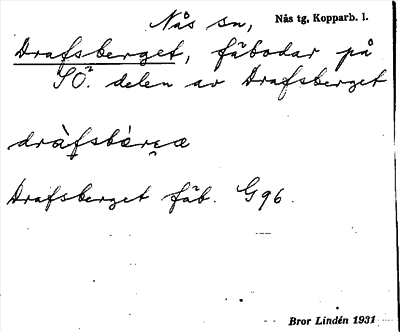 Nås sn, Nås tg, Kopparb. l.
Drafsberget, fäbodar på
SÖ. delen av Drafsberget
dràfsbæ̀rɛæ
Drafsberget fäb. G96.
Bror Lindén 1931